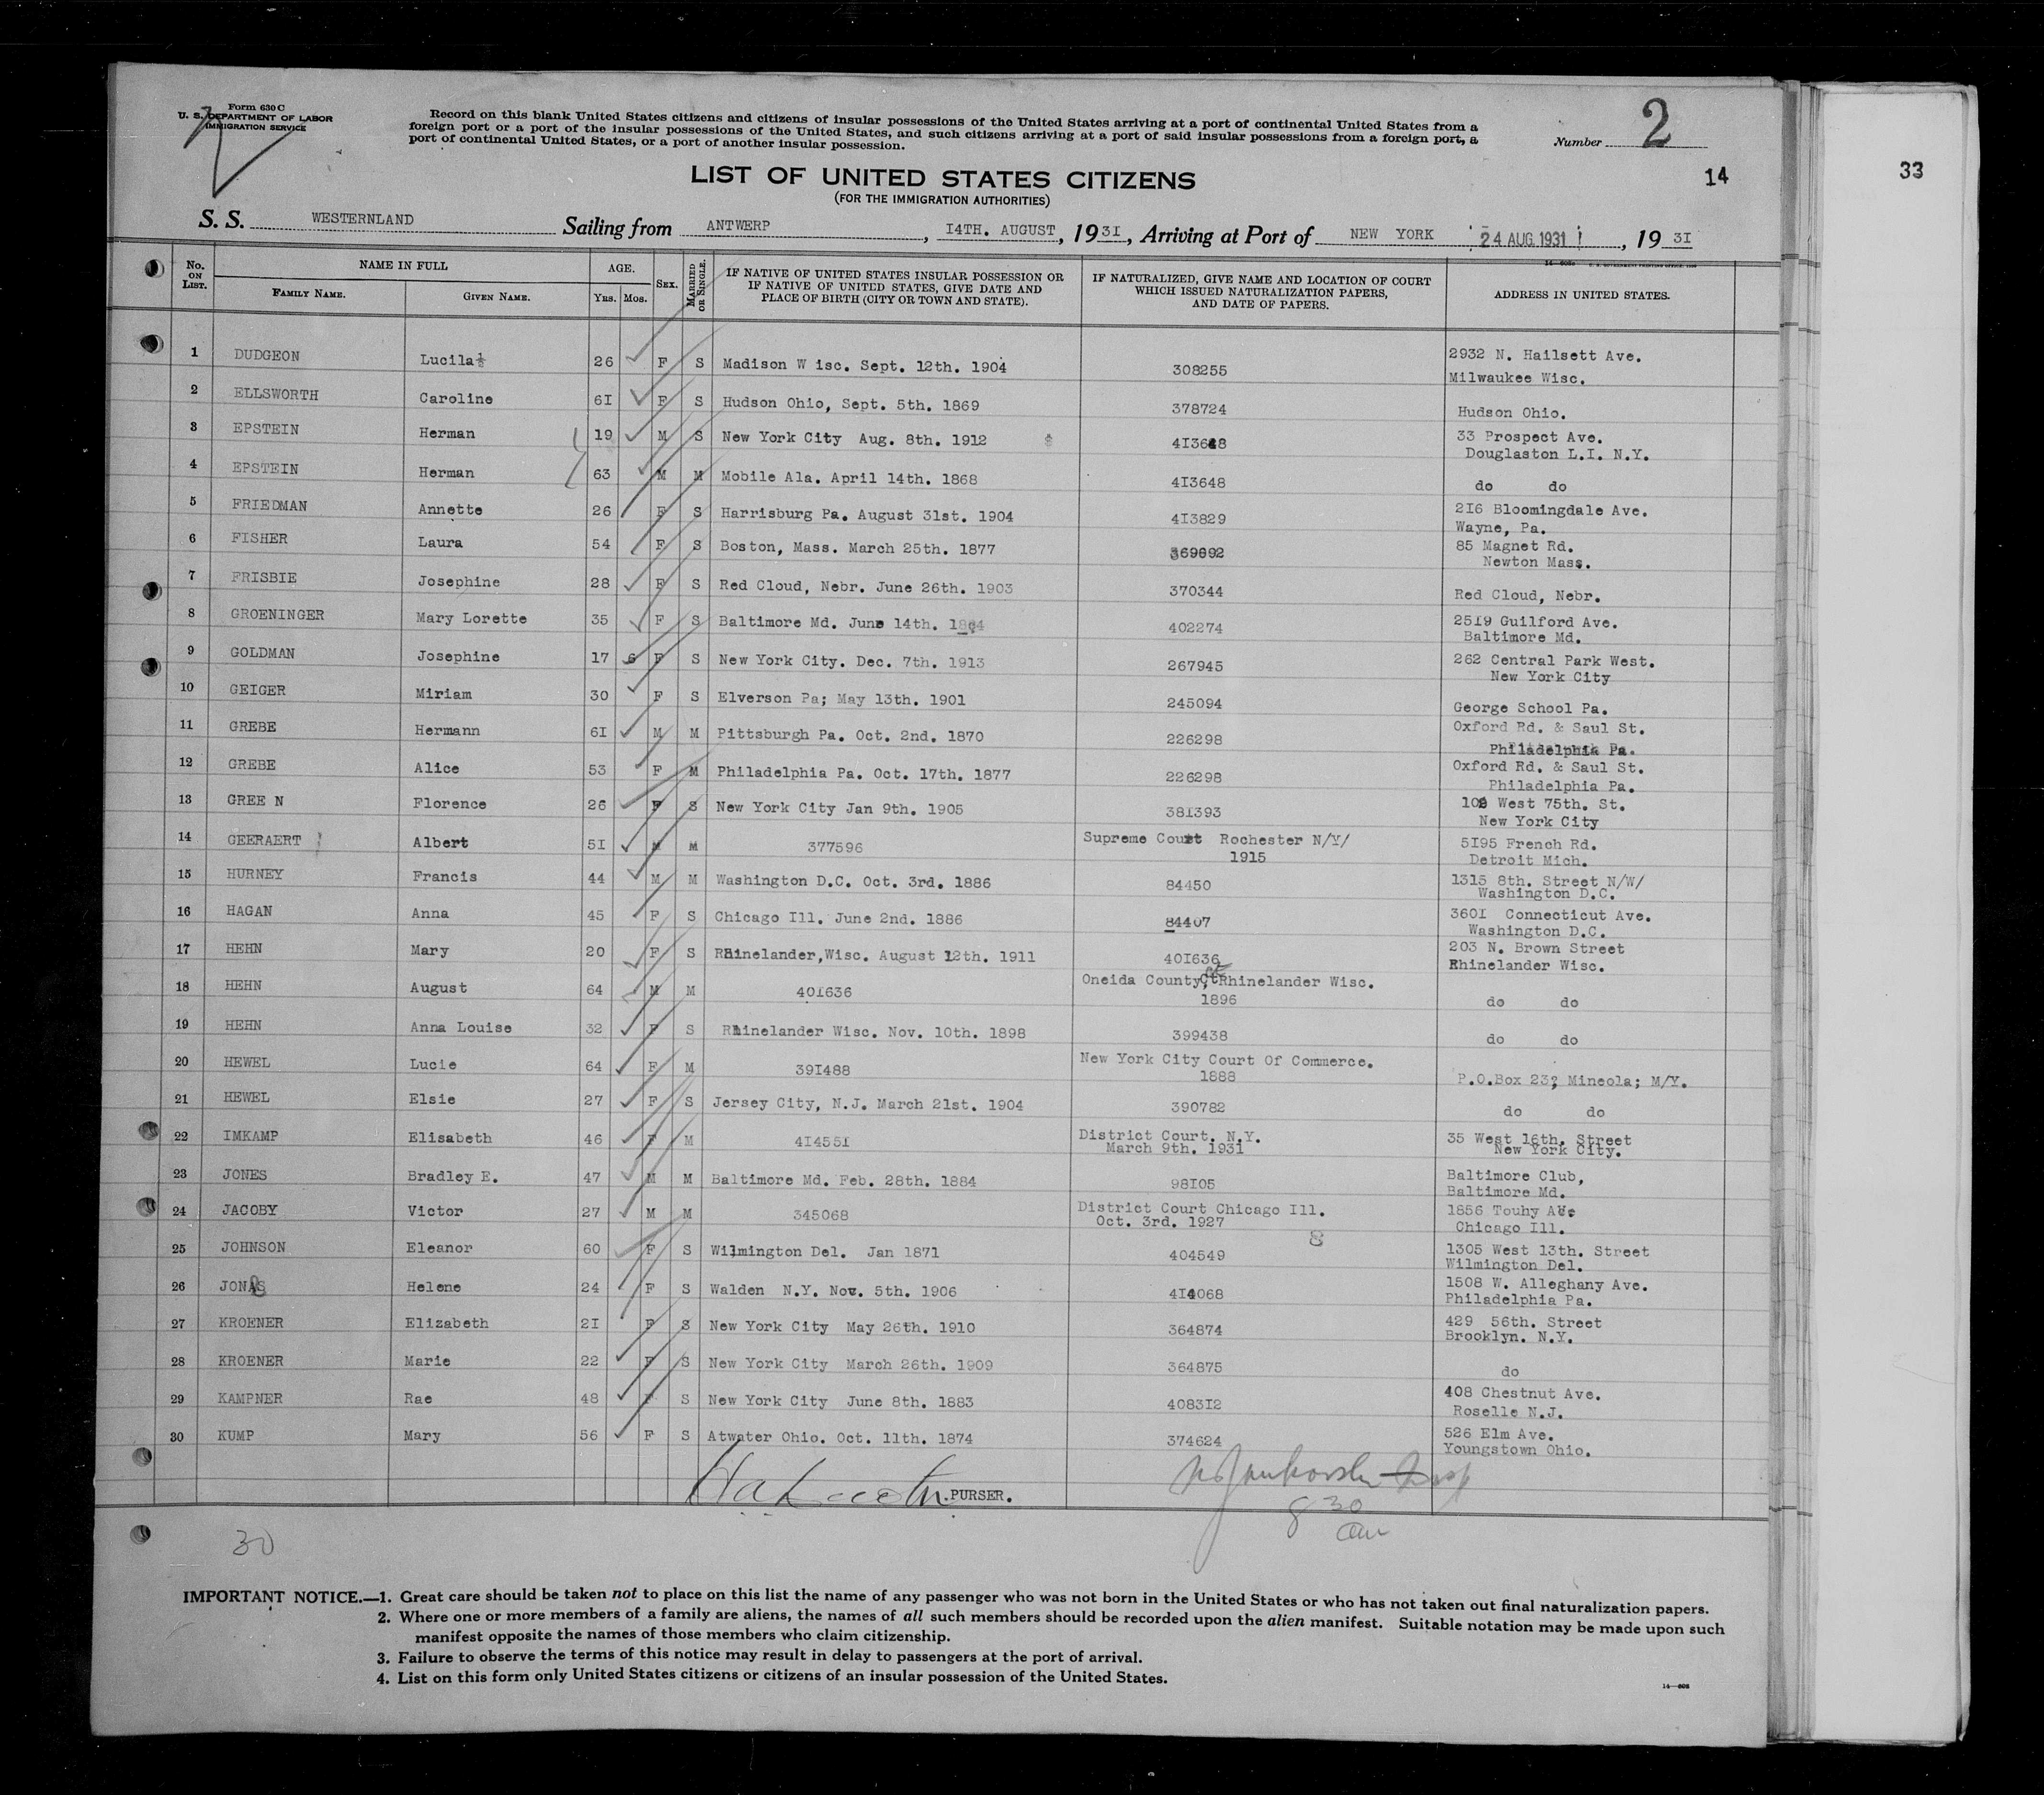 Form 630 C
U. S. DEPARTMENT OF LABOR
IMMIGRATION SERVICE
Record on this blank United States citizens and citizens of insular possessions of the United States arriving at a port of continental United States from a
foreign port or a port of the insular possessions of the United States, and such citizens arriving at a port of said insular possessions from a foreign port, a
port of continental United States, or a port of another insular possession.
Number 2
14
33
LIST OF UNITED STATES CITIZENS
(FOR THE IMMIGRATION AUTHORITIES)
S. S. WESTERNLAND Sailing from ANTWERP, I4TH. AUGUST, 1931, Arriving at Port of NEW YORK 24 AUG 1931, 1931
No. ON LIST. NAME IN FULL FAMILY NAME. GIVEN NAME. AGE. YRS. MOS. SEX. MARRIED OR SINGLE. IF NATIVE OF UNITED STATES INSULAR POSSESSION OR IF NATIVE OF UNITED STATES, GIVE DATE AND PLACE OF BIRTH (CITY OR TOWN AND STATE). IF NATURALIZED, GIVE NAME AND LOCATION OF COURT WHICH ISSUED NATURALIZATION PAPERS, AND DATE OF PAPERS. ADDRESS IN UNITED STATES.
1 DUDGEON Lucila 26 F S Madison W isc. Sept. 12th. 1904 308255 2932 N. Hailsett Ave.
Milwaukee Wisc.
2 ELLSWORTH Caroline 6I F S Hudson Ohio, Sept. 5th. 1869 378724 Hudson Ohio.
3 EPSTEIN Herman 19 M S New York City Aug. 8th. 1912 4I3648 33 Prospect Ave.
Douglaston L.I. N.Y.
4 EPSTEIN Herman 63 M M Mobile Ala. April 14th. 1868 4I3648 do do
5 FRIEDMAN Annette 26 F S Harrisburg Pa. August 31st. 1904 4I3829 2I6 Bloomingdale Ave.
Wayne, Pa.
6 FISHER Laura 54 F S Boston, Mass. March 25th. 1877 369892 85 Magnet Rd.
Newton Mass.
7 FRISBIE Josephine 28 F S Red Cloud, Nebr. June 26th. 1903 370344 Red Cloud, Nebr.
8 GROENINGER Mary Lorette 35 F S Baltimore Md. June 14th. 402274 25I9 Guilford Ave.
Baltimore Md.
9 GOLDMAN Josephine 17 6 F S New York City. Dec. 7th. 1913 267945 262 Central Park West.
New York City
10 GEIGER Miriam 30 F S Elverson Pa; May 13th. 1901 245094 George School Pa.
11 GREBE Hermann 6I M M Pittsburgh Pa. Oct. 2nd. 1870 226298 Oxford Rd. & Saul St.
Philadelphia Pa.
12 GREBE Alice 53 F M Philadelphia Pa. Oct. 17th. 1877 226298 Oxford Rd. & Saul St.
Philadelphia Pa.
13 GREE N Florence 26 F S New York City Jan 9th. 1905 38I393 West 75th. St.
New York City
14 GEERAERT Albert 5I M M 377596 Supreme Court Rochester N/Y/
1915 5I95 French Rd.
Detroit Mich.
15 HURNEY Francis 44 M M Washington D.C. Oct. 3rd. 1886 84450 1315 8th. Street N/W/
Washington D.C.
16 HAGAN Anna 45 F S Chicago Ill. June 2nd. 1886 84407 360I Connecticut Ave.
Washington D.C.
17 HEHN Mary 20 F S Rhinelander, Wisc. August 12th. 1911 40I636 203 N. Brown Street
Rhinelander Wisc.
18 HEHN August 64 M M 40I636 Oneida County, Ct Rhinelander Wisc.
1896 do do
19 HEHN Anna Louise 32 F S Rhinelander Wisc. Nov. 10th. 1898 399438 do do
20 HEWEL Lucie 64 F M 39I488 New York City Court Of Commerce.
1888 P.O.Box 232 Mineola; M/Y.
21 HEWEL Elsie 27 F S Jersey City, N.J. March 21st. 1904 390782 do do
22 IMKAMP Elisabeth 46 F M 4I455I District Court. N.Y.
March 9th. 1931 35 West 16th. Street
New York City.
23 JONES Bradley E. 47 M M Baltimore Md. Feb. 28th. 1884 98I05 Baltimore Club,
Baltimore Md.
24 JACOBY Victor 27 M M 345068 District Court Chicago Ill.
Oct. 3rd. 1927 1856 Touhy Ave
Chicago Ill.
25 JOHNSON Eleanor 60 F S Wilmington Del. Jan 1871 404549 8 1305 West 13th. Street
Wilmington Del.
26 JONAS Helene 24 F S Walden N.Y. Nov. 5th. 1906 4I4068 1508 W. Alleghany Ave.
Philadelphia Pa.
27 KROENER Elizabeth 2I F S New York City May 26th. 1910 364874 429 56th. Street
Brooklyn. N.Y.
28 KROENER Marie 22 F S New York City March 26th. 1909 364875 do
29 KAMPNER Rae 48 F S New York City June 8th. 1883 4083I2 408 Chestnut Ave.
Roselle N.J.
30 KUMP Mary 56 F S Atwater Ohio. Oct. 11th. 1874 374624 526 Elm Ave.
Youngstown Ohio.
PURSER.
8 30
am
30
IMPORTANT NOTICE.—1. Great care should be taken not to place on this list the name of any passenger who was not born in the United States or who has not taken out final naturalization papers.
2. Where one or more members of a family are aliens, the names of all such members should be recorded upon the alien manifest. Suitable notation may be made upon such
manifest opposite the names of those members who claim citizenship.
3. Failure to observe the terms of this notice may result in delay to passengers at the port of arrival.
4. List on this form only United States citizens or citizens of an insular possession of the United States.
14—608